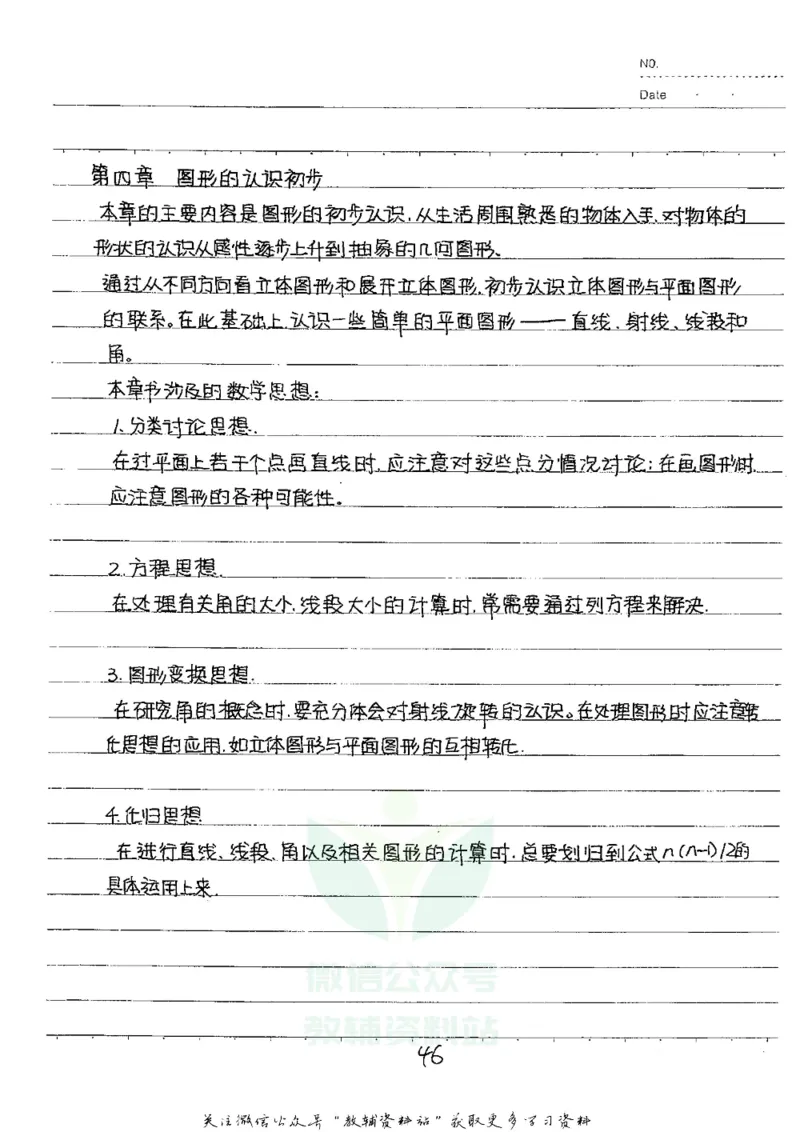 NO.
Date
第四章 图形的认识初步
本章的主要内容是图形的初步认识,从生活周围熟悉的物体入手,对物体的
形状的认识从感性逐步上升到抽象的几何图形、
通过从不同方向看立体图形和展开立体图形,初步认识立体图形与平面图形
的联系。在此基础上,认识一些简单的平面图形——直线、射线、线段和
角。
本章书涉及的数学思想:
1.分类讨论思想.
在过平面上若干个点画直线时,应注意对这些点分情况讨论;在画图形时,
应注意图形的各种可能性。
2.方程思想.
在处理有关角的大小,线段大小的计算时,常需要通过列方程来解决.
3.图形变换思想.
在研究角的概念时,要充分体会对射线旋转的认识。在处理图形时应注意转
化思想的应用,如立体图形与平面图形的互相转化.
4.化归思想
在进行直线、线段、角以及相关图形的计算时,总要划归到公式n(n-1)/2的
具体运用上来.
微信公众号
教辅资料站
46
关注微信公众号“教辅资料站”获取更多学习资料